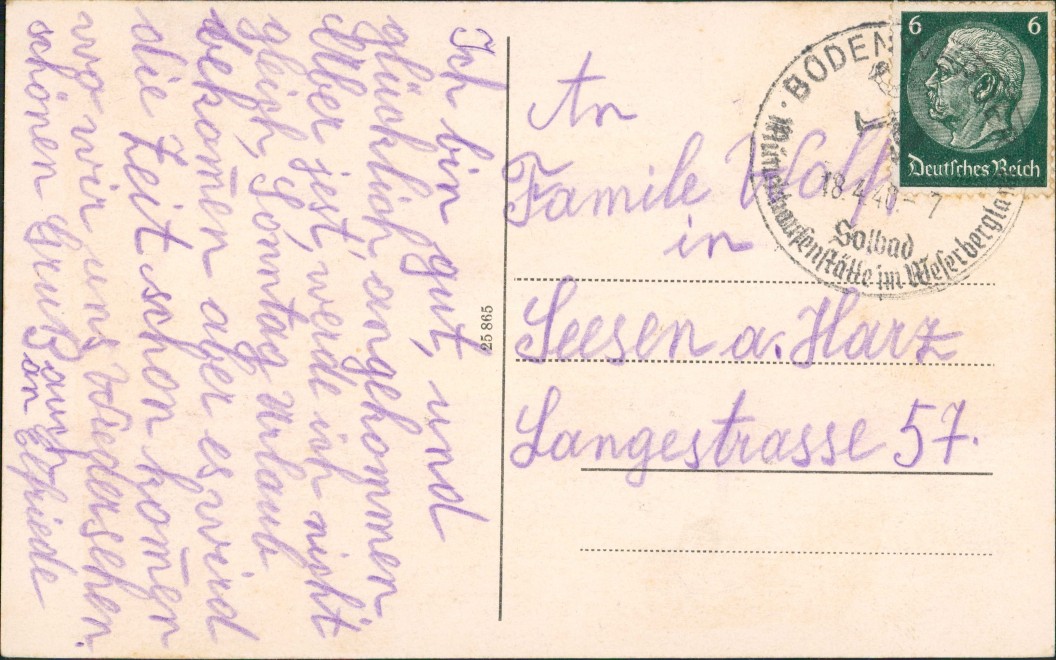 Ich bin gut, und
glücklich angekommen.
Aber jest, werde ich nicht
gleich, Sonntag Urlaub
bekom̄en aber es wird
die Zeit schon kom̄en
wo wir uns Wiedersehen.
schönen Gruß auch
an Elfriede
25 865
An
Famile Wolf
in
Seesen a. Harz
Langestrasse 57.
6 6
Deutsches Reich
18.4.40.- 7
Solbad
Münchhausenstätte im Weserbergland